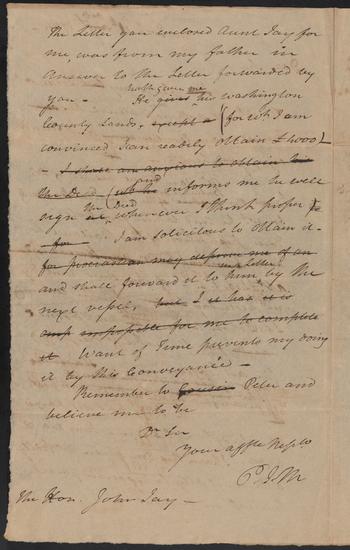 The Letter you enclosed Aunt Jay for
me, was from my father in
answer to the Letter forwarded by
you - He hath given me
gives his Washington
County Lands, except a (for wh. I am
convinced I can readily obtain £4000)
- I shall am anxious to obtain his
The De and
informs me he will
sign the Deed
whenever I think proper
- for I am solicitous to obtain it -
for procrastination may deprive me of an
and shall forward it to him by the
next vessel, but I it has it is
impossible for me to complete
it Want of Time prevents my doing
it by this Conveyance -
Remember to Cousin Peter and
believe me to be
Dr Sir
Your affte Nephw
P J M
The Hon. John Jay -